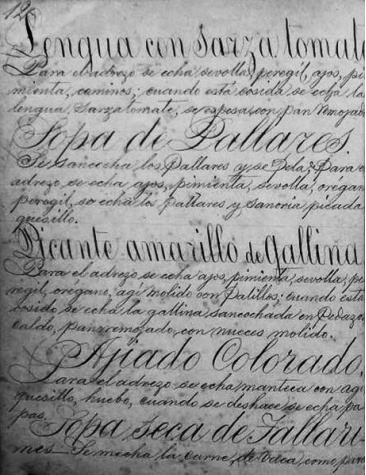 12
Lengua con sarza tomate
Para el adrezo se echa sevolla, peregil, ajos, pi
mienta, cominos; cuando esta cosida se echa la
lengua sarza tomate, se espesa con pan remojado
Sopa de Pallares.
Se sancocha los Pallares y se Pela; Para el
adrezo se echa ajos, pimienta, sevolla, oregano
peregil, se echa los pallares y sanoria picada
quesillo.
Picante amarillo de Gallina
Para el adrezo se echa ajos, pimienta, sevolla, pe
regil, orégano, agi molido con Palillos; cuando esta
cosido se echa la gallina sancochada en Pedazos
caldo, pan remojado, con nueces molido.
Ajiado Colorado.
Para el adrezo se echa manteca con agi
quesillo, huebo, cuando se deshace se echa pa
pas.
Sopa seca de Tallari-
nes - Se mecha la carne, de vaca como para